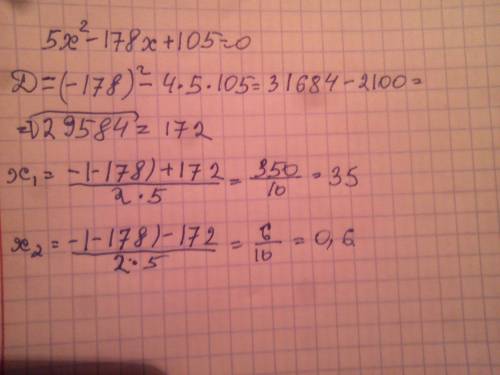 5x²-178x+105=0
D=(-178)²-4·5·105=31684-2100=
=√29584=172
x₁=-(-178)+172/2·5=350/10=35
x₂=-(-178)-172/2·5=6/10=0,6